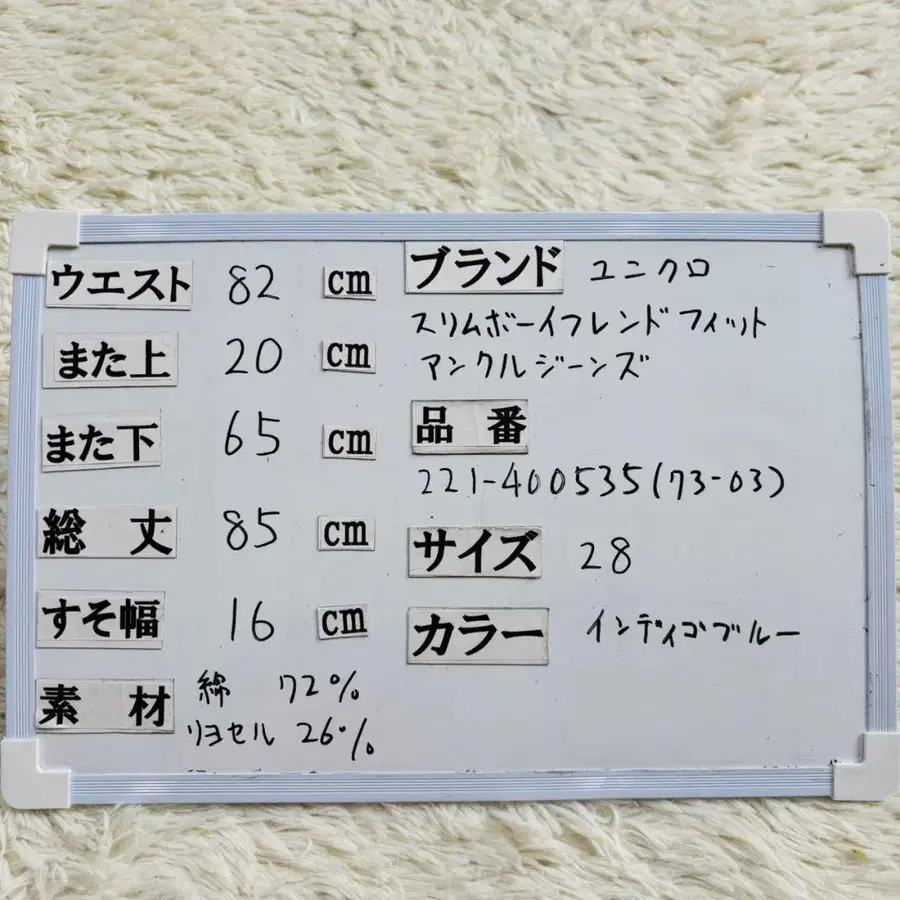 ウエスト 82 cm
また上 20 cm
また下 65 cm
総丈 85 cm
すそ幅 16 cm
素材 綿 72%
リヨセル 26%
ブランド ユニクロ
スリムボーイフレンドフィット
アンクルジーンズ
品番
221-400535(73-03)
サイズ 28
カラー インディゴブルー